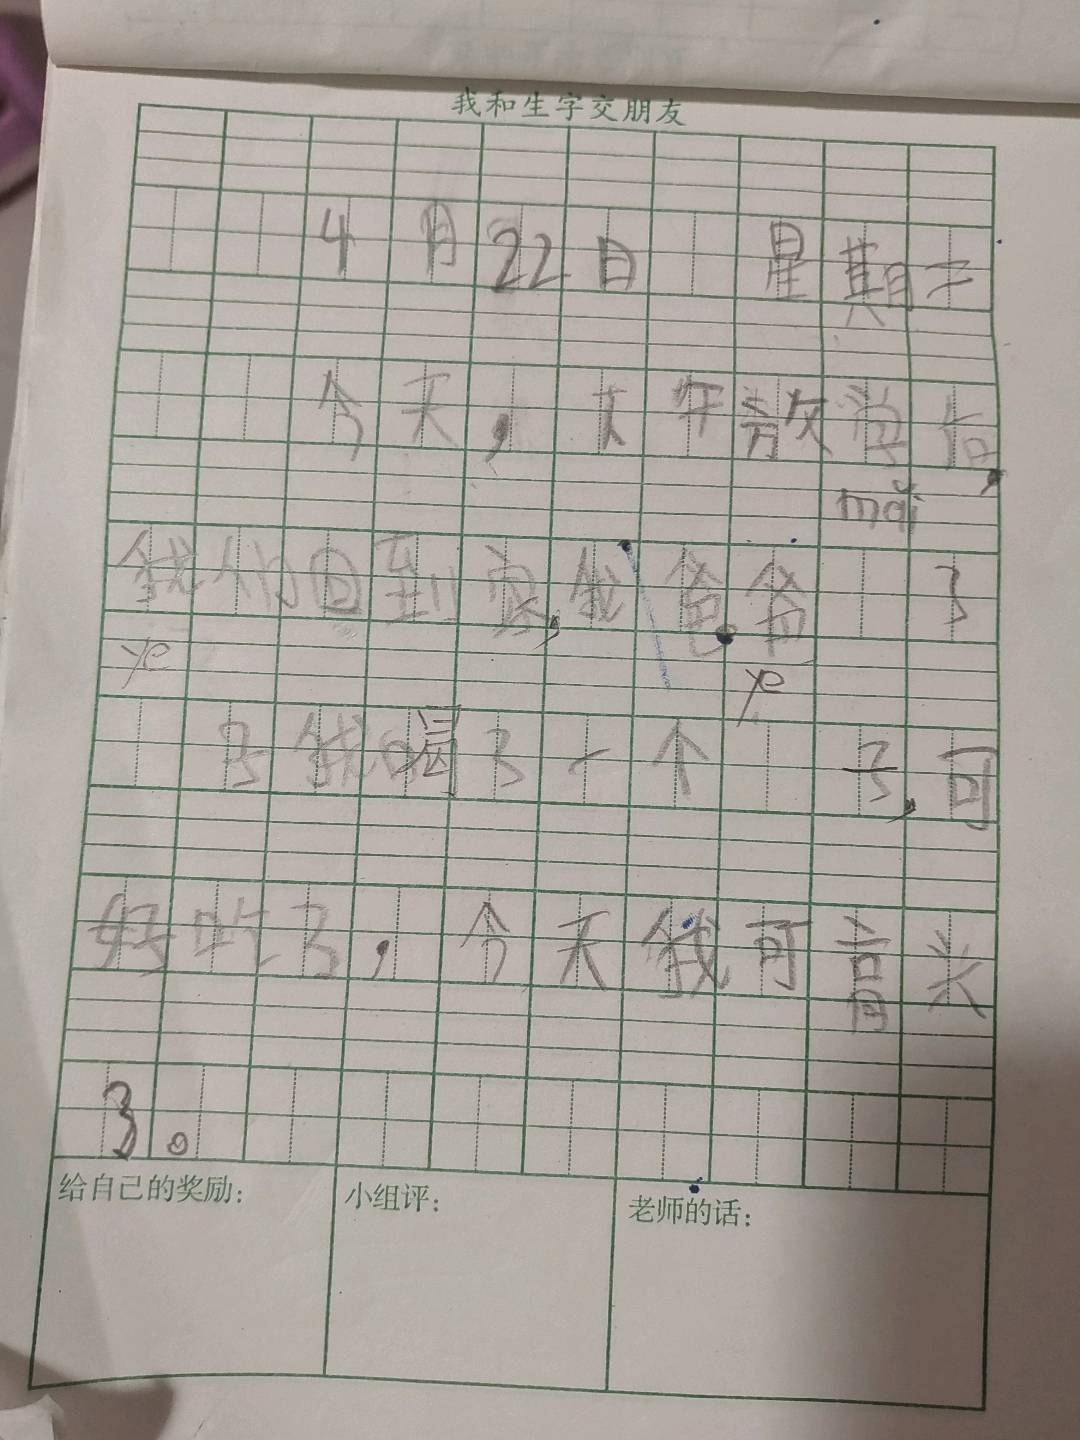 我和生字交朋友
4月22日 星期二
今天,下午放学后,
mǎi
我们回到家,我爸爸 了
ye ye
子我喝了一个 子,可
好吃了,今天我可高兴
了。
给自己的奖励: 小组评: 老师的话: